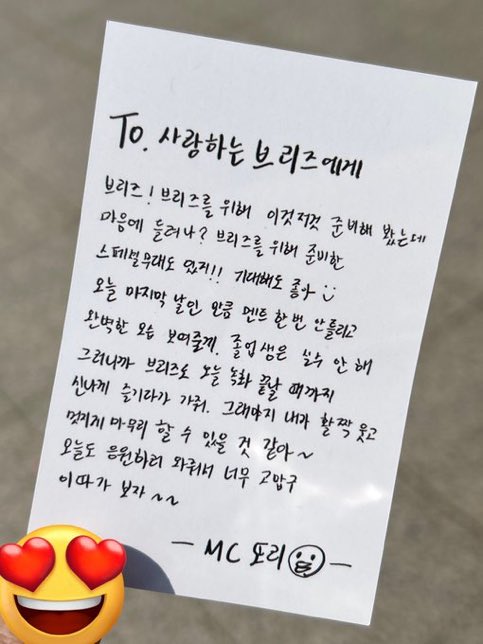 To. 사랑하는 브리즈에게
브리즈! 브리즈를 위해 이것저것 준비해 봤는데
마음에 들려나? 브리즈를 위해 준비한
스페셜무대도 있지!! 기대해도 좋아
오늘 마지막 날인 만큼 멘트 한번 안틀리고
완벽한 모습 보여줄게. 졸업생은 실수 안 해
그러니까 브리즈도 오늘 녹화 끝날 때까지
신나게 즐기다가 가줘. 그래야지 내가 활짝 웃고
멋지게 마무리 할 수 있을 것 같아~
오늘도 응원하러 와줘서 너무 고맙구
이따가 보자~~
— MC 또리 —